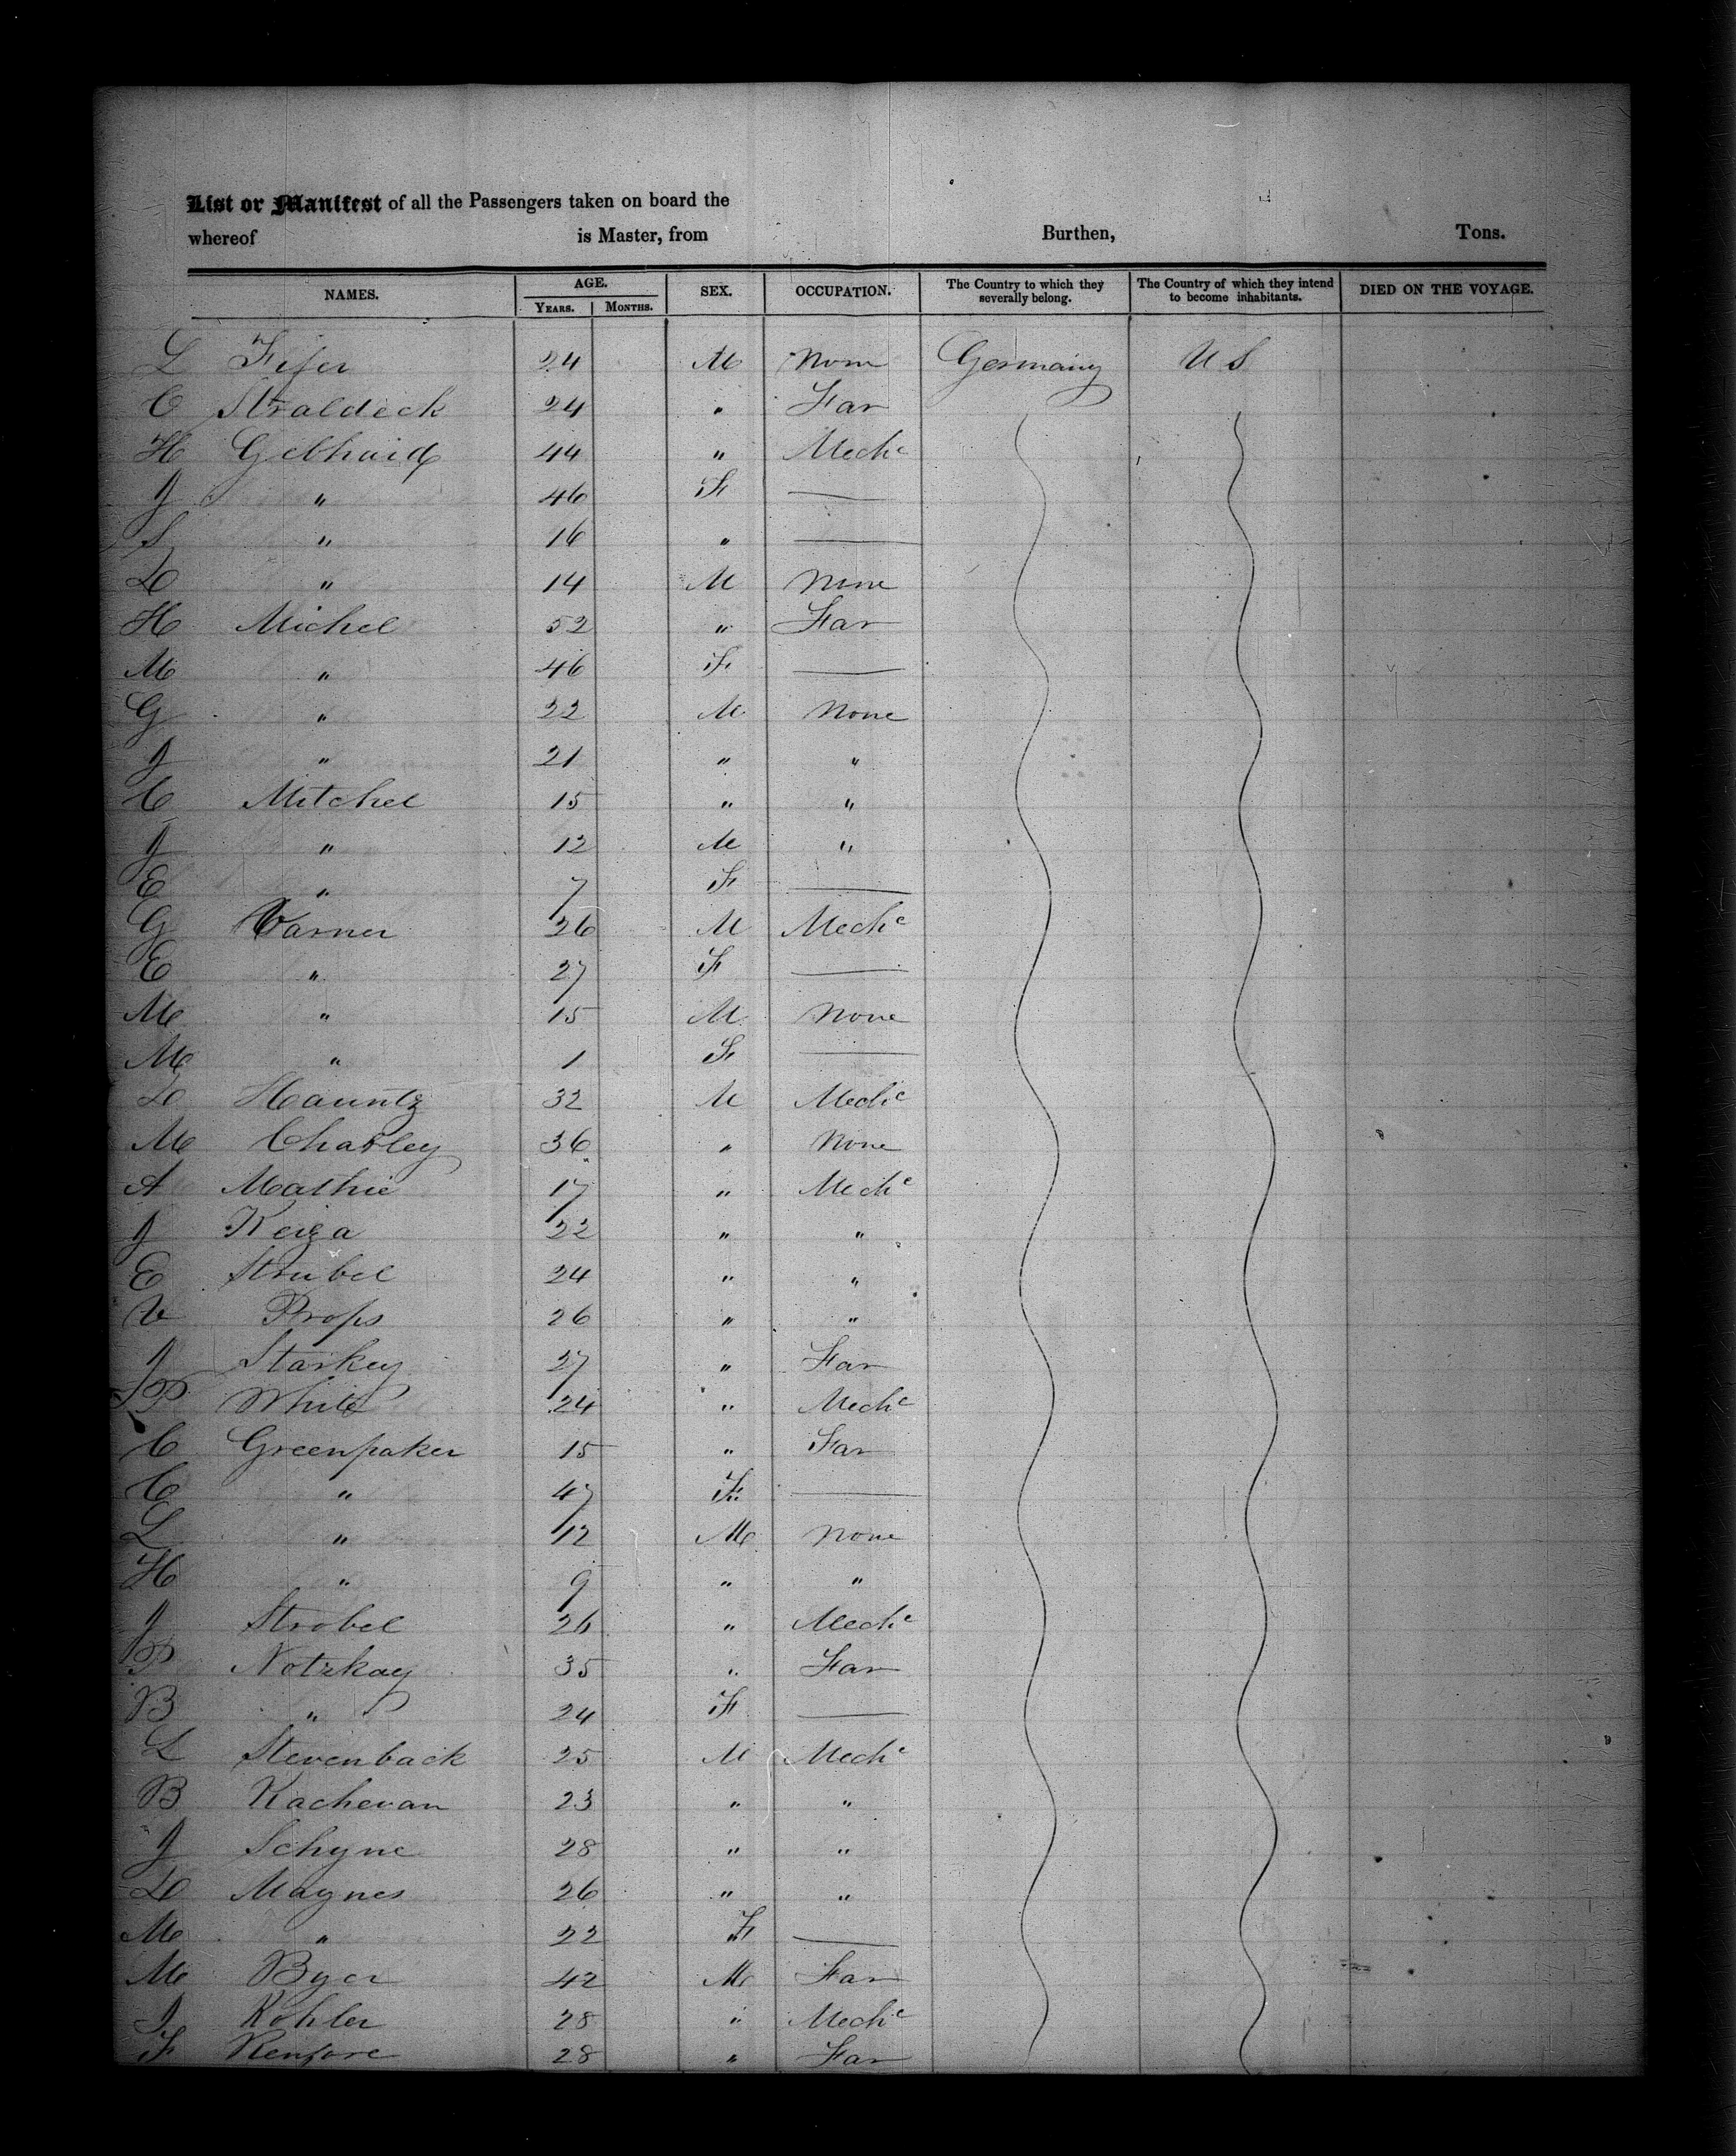 List or Manifest of all the Passengers taken on board the
whereof is Master, from Burthen, Tons.
NAMES. AGE. YEARS. MONTHS. SEX. OCCUPATION. The Country to which they severally belong. The Country of which they intend to become inhabitants. DIED ON THE VOYAGE.
L Fifer 24 M None Germany U S
C Straldeck 24 " Far
H Gebhard 44 " Mechc
J " 46 F —
S " 16 " —
D " 14 M None
H Michel 52 " Far
M " 46 F —
G " 22 M None
J " 21 " "
C Mitchel 15 " "
J " 12 M "
E " 7 F —
G Varner 26 M Mechc
E " 27 F —
M " 15 M None
M " 1 F —
D Hauntz 32 M Mechc
M Charley 36 " None
A Mathie 17 " Mechc
J Keiza 22 " "
E Strubel 24 " "
V Props 26 " "
J Starkey 27 " Far
P White 24 " Mechc
C Greenpaker 15 " Far
C " 47 F —
L " 12 M None
H " 9 " "
J Strobel 26 " Mechc
P Notzkay 35 " Far
B " 24 F —
L Stevenback 25 M Mechc
B Kachevan 23 " "
J Schyne 28 " "
D Maynes 26 " "
M " 22 F —
M Byer 42 M Far
J Kohler 28 " Mechc
F Renfore 28 " Far